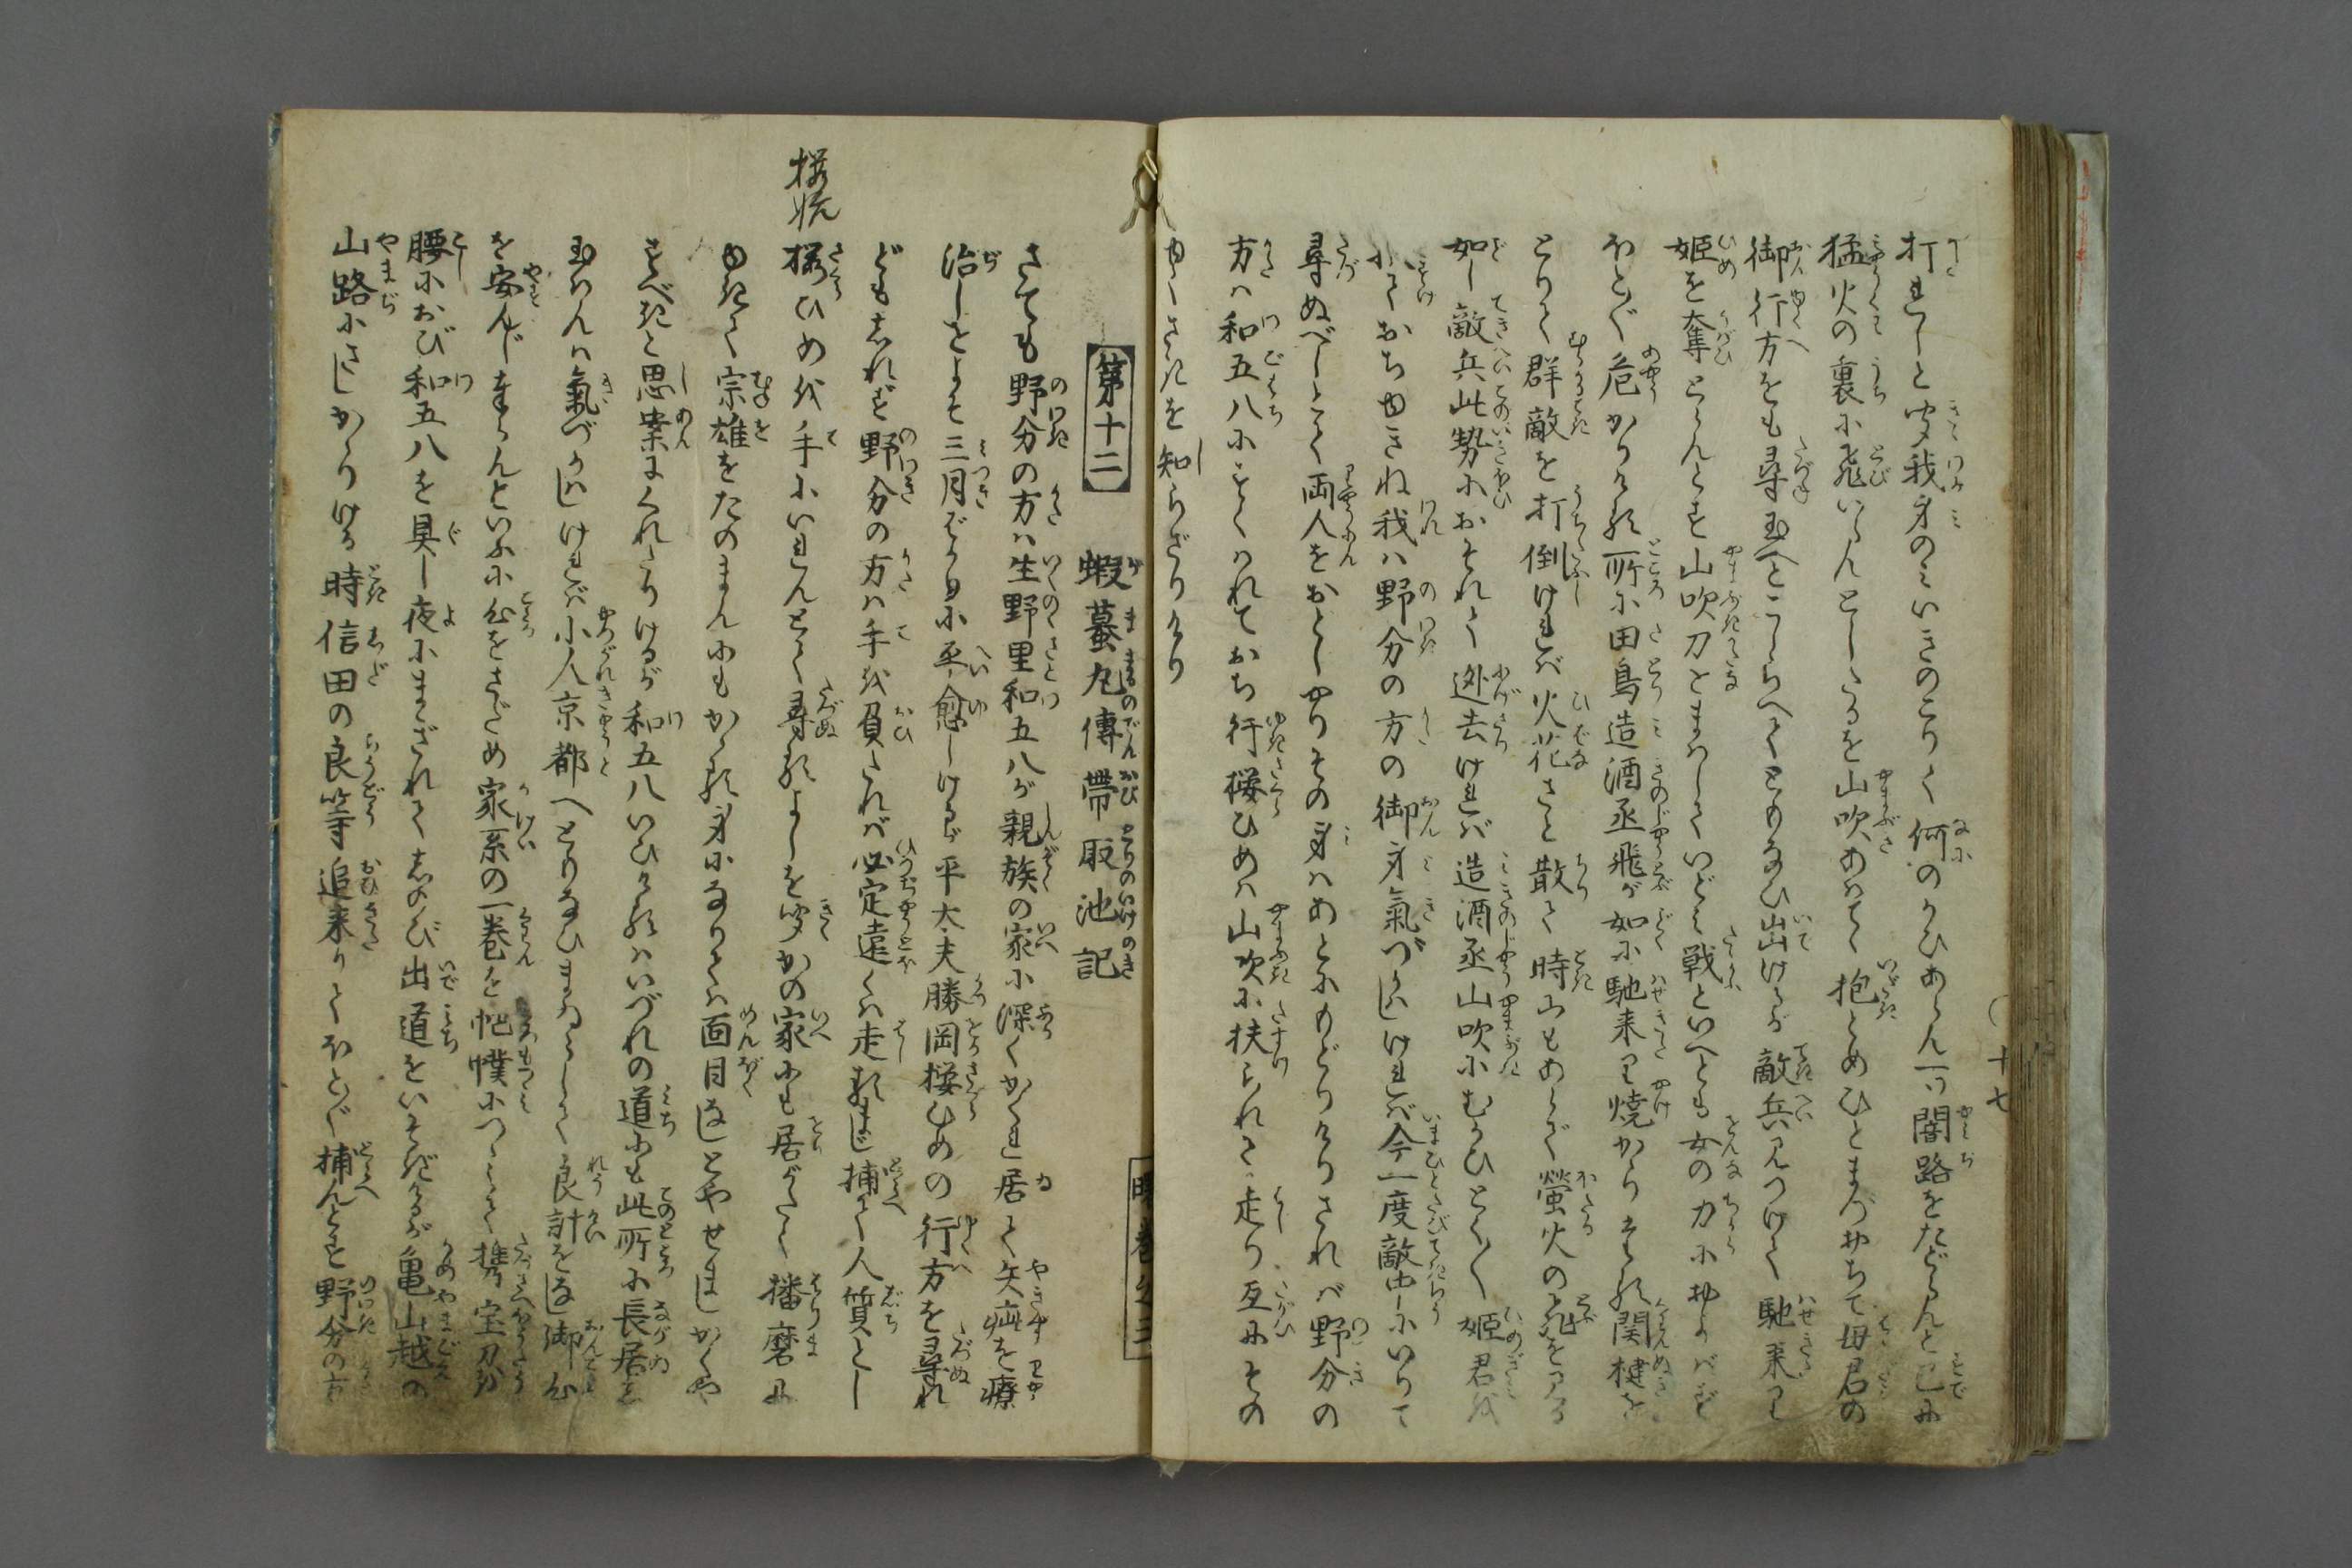 打れしと聞我身のみいきのこりて何のかひあらん一ツ闇路をたどらんと已に
猛火の裏に飛いらんとしたるを山吹あはてゝ抱とめひとまづおちて母君の
御行方をも尋玉へとこしらへてともなひ出けるが敵兵見つけて馳来り
姫を奪とらんとす山吹刀をまはしていどみ戦といへとも女の力におよバず
ほとんど危かりける所に田鳥造酒丞飛が如に馳来り焼かりたる関楗を
とりて群敵を打倒ければ火花さと散て時にもあらで螢火の飛を見る
如し敵兵此勢におそれて逃去ければ造酒丞山吹にむかひとく〳〵姫君を
小ておちゆきね我ハ野分の方の御身氣づかはしければ今一度敵中にいりて
尋ぬべしとて両人をおとしやりその身はあとにもどりけりされバ野分の
方ハ和五八にたすくられておち行桜ひめハ山吹に扶られて走り互にその
ゆくさきを知らざりけり
十七
第十二 蝦蟇丸傳 帯取池記
さても野分の方ハ生野里和五八が親族の家に深くかくれ居て矢疵を療
治しをよそ三月ばかりに平愈しけるが平太夫勝岡桜ひめの行方を尋れ
どもしれず野分の方ハ手を負たれバ必定遠くハ走るまじ捕て人質とし
桜ひめを手にいれんとて尋るよしを聞かの家にも居がたく播磨に
ゆきて宗雄をたのまんにもかゝる身になりてハ面目なしとやせましかくや
すべきと思案にくれたりけるが和五八いひけるハいづれの道にも此所に長居し
玉はんハ氣づかはしければ小人京都へとりなひまゐらして良計をなし御心
を安んじまゐらんといふに心をさだめ家系の一巻を帊幞につゝみて携宝刀を
腰におび和五八を具し夜にまぎれてしのび出道をいそぎけるが亀山越の
山路にさしかゝりける時信田の良等追来りてほとんど捕んとす野分の方
桜姫